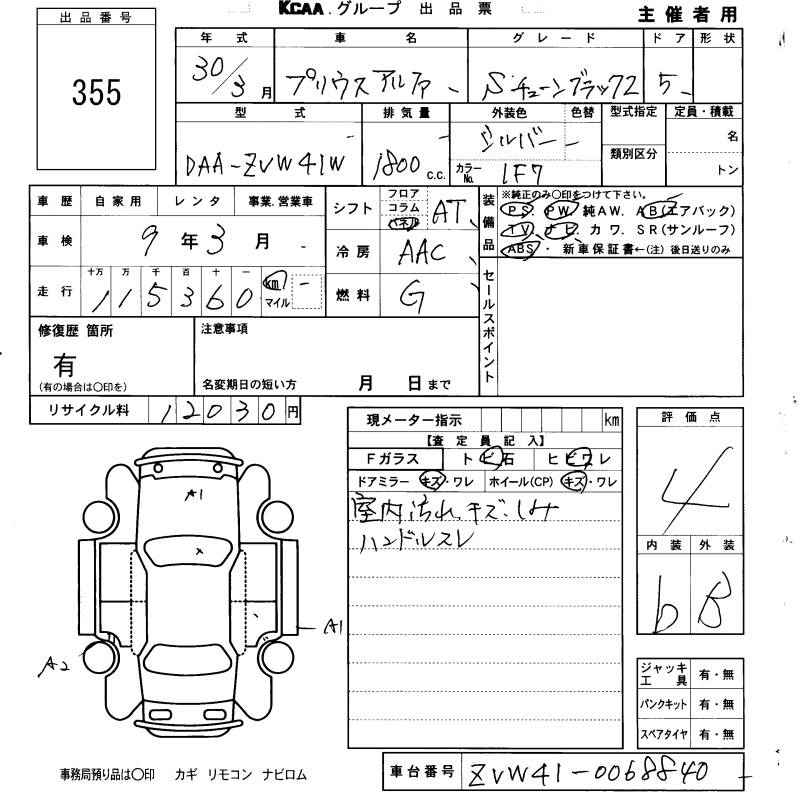 KCAA.グループ 出品票
主催者用
出品番号
355
年式 車名 グレード ドア 形状
30/3月 プリウスアルファ Sチューンブラック2 5
型式 排気量 外装色 色替 型式指定 定員・積載
DAA-ZVW41W 1800 c.c. シルバー カラーNo. 1F7 類別区分 名 トン
車歴 自家用 レンタ 事業.営業車
車検 9年3月
走行 十万 万 千 百 十 一
115360 km マイル
シフト フロア コラム パネル AT
冷房 AAC
燃料 G
装備品 ※純正のみ○印をつけて下さい。
PS. PW. 純AW. AB(エアバック)
TV. ナビ. カワ. SR(サンルーフ)
ABS・ 新車保証書←(注) 後日送りのみ
セールスポイント
修復歴 箇所
有
(有の場合は○印を)
注意事項
名変期日の短い方 月 日まで
リサイクル料 12030円
現メーター指示 km
【査定員記入】
Fガラス トビ石 ヒビワレ
ドアミラー キズ・ワレ ホイール(CP) キズ・ワレ
室内汚れ、キズ、しみ
ハンドルスレ
評価点
4
内装 外装
b B
A1
A1
A2
ジャッキ工具 有・無
パンクキット 有・無
スペアタイヤ 有・無
事務局預り品は○印 カギ リモコン ナビロム
車台番号 ZVW41-0068840